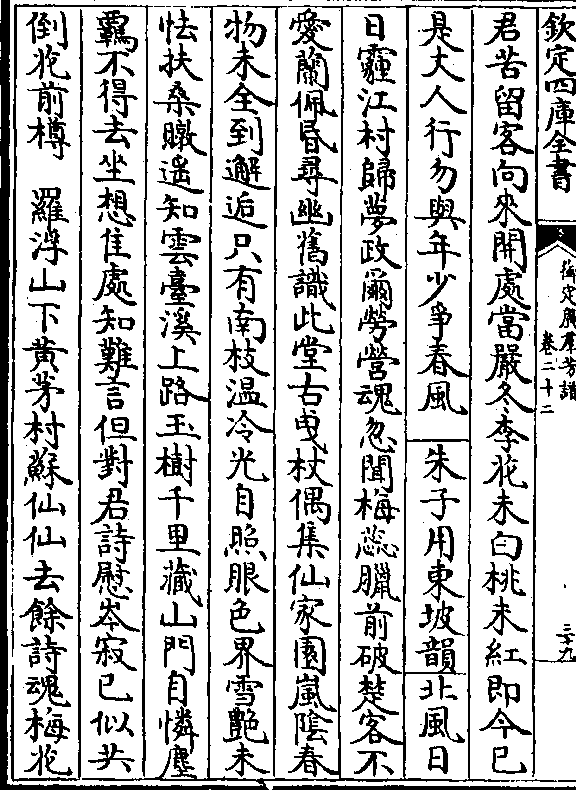 欽定四庫全書
御定佩文齋廣羣芳譜
卷二十二
三十九
君苦留客向來開處當嚴冬李花未白桃未紅即今已
是丈人行勿與年少爭春風　朱子用東坡韻　北風日
日霾江村歸夢政爾勞營魂忽聞梅蕊臘前破楚客不
愛蘭佩昬尋幽舊識此堂古曳杖偶集仙家園嵐陰春
物未全到邂逅只有南枝温冷光自照眼色界雪艷未
怯扶桑暾遙知雲臺溪上路玉樹千里藏山門自憐塵
羈不得去坐想佳處知難言但對君詩慰岑寂已似共
倒花前樽　羅浮山下黄茅村蘇仙仙去餘詩魂梅花